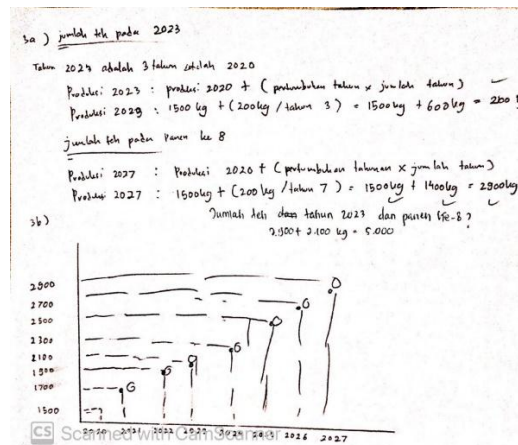 3a) jumlah teh pada 2023
Tahun 2023 adalah 3 tahun setelah 2020
Produksi 2023 : produksi 2020 + ( pertumbuhan tahun x jumlah tahun )
Produksi 2023 : 1500 kg + (200kg / tahun 3 ) = 1500kg + 600kg =
jumlah teh pada Panen ke 8
Produksi 2027 : Produksi 2020 + ( pertumbuhan tahunan x jumlah tahun )
Produksi 2027 : 1500kg + (200 kg / tahun 7 ) = 1500kg + 1400kg = 2900kg
Jumlah teh dan tahun 2023 dan panen ke-8 ?
3b)
2.900 + 2.100 kg = 5.000
2900
2700
2500
2300
2100
1900
1700
1500
2020 2021 2022 2023 2026 2027
CS Scanned with CamScanner